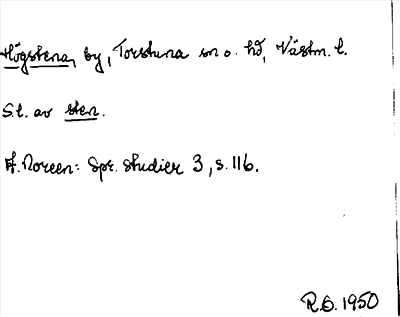 Högstena, by, Torstuna sn o. hd, Västm. l.
S.l. av sten.
A. Noreen: Spr. studier 3, s. 116.
R.O. 1950